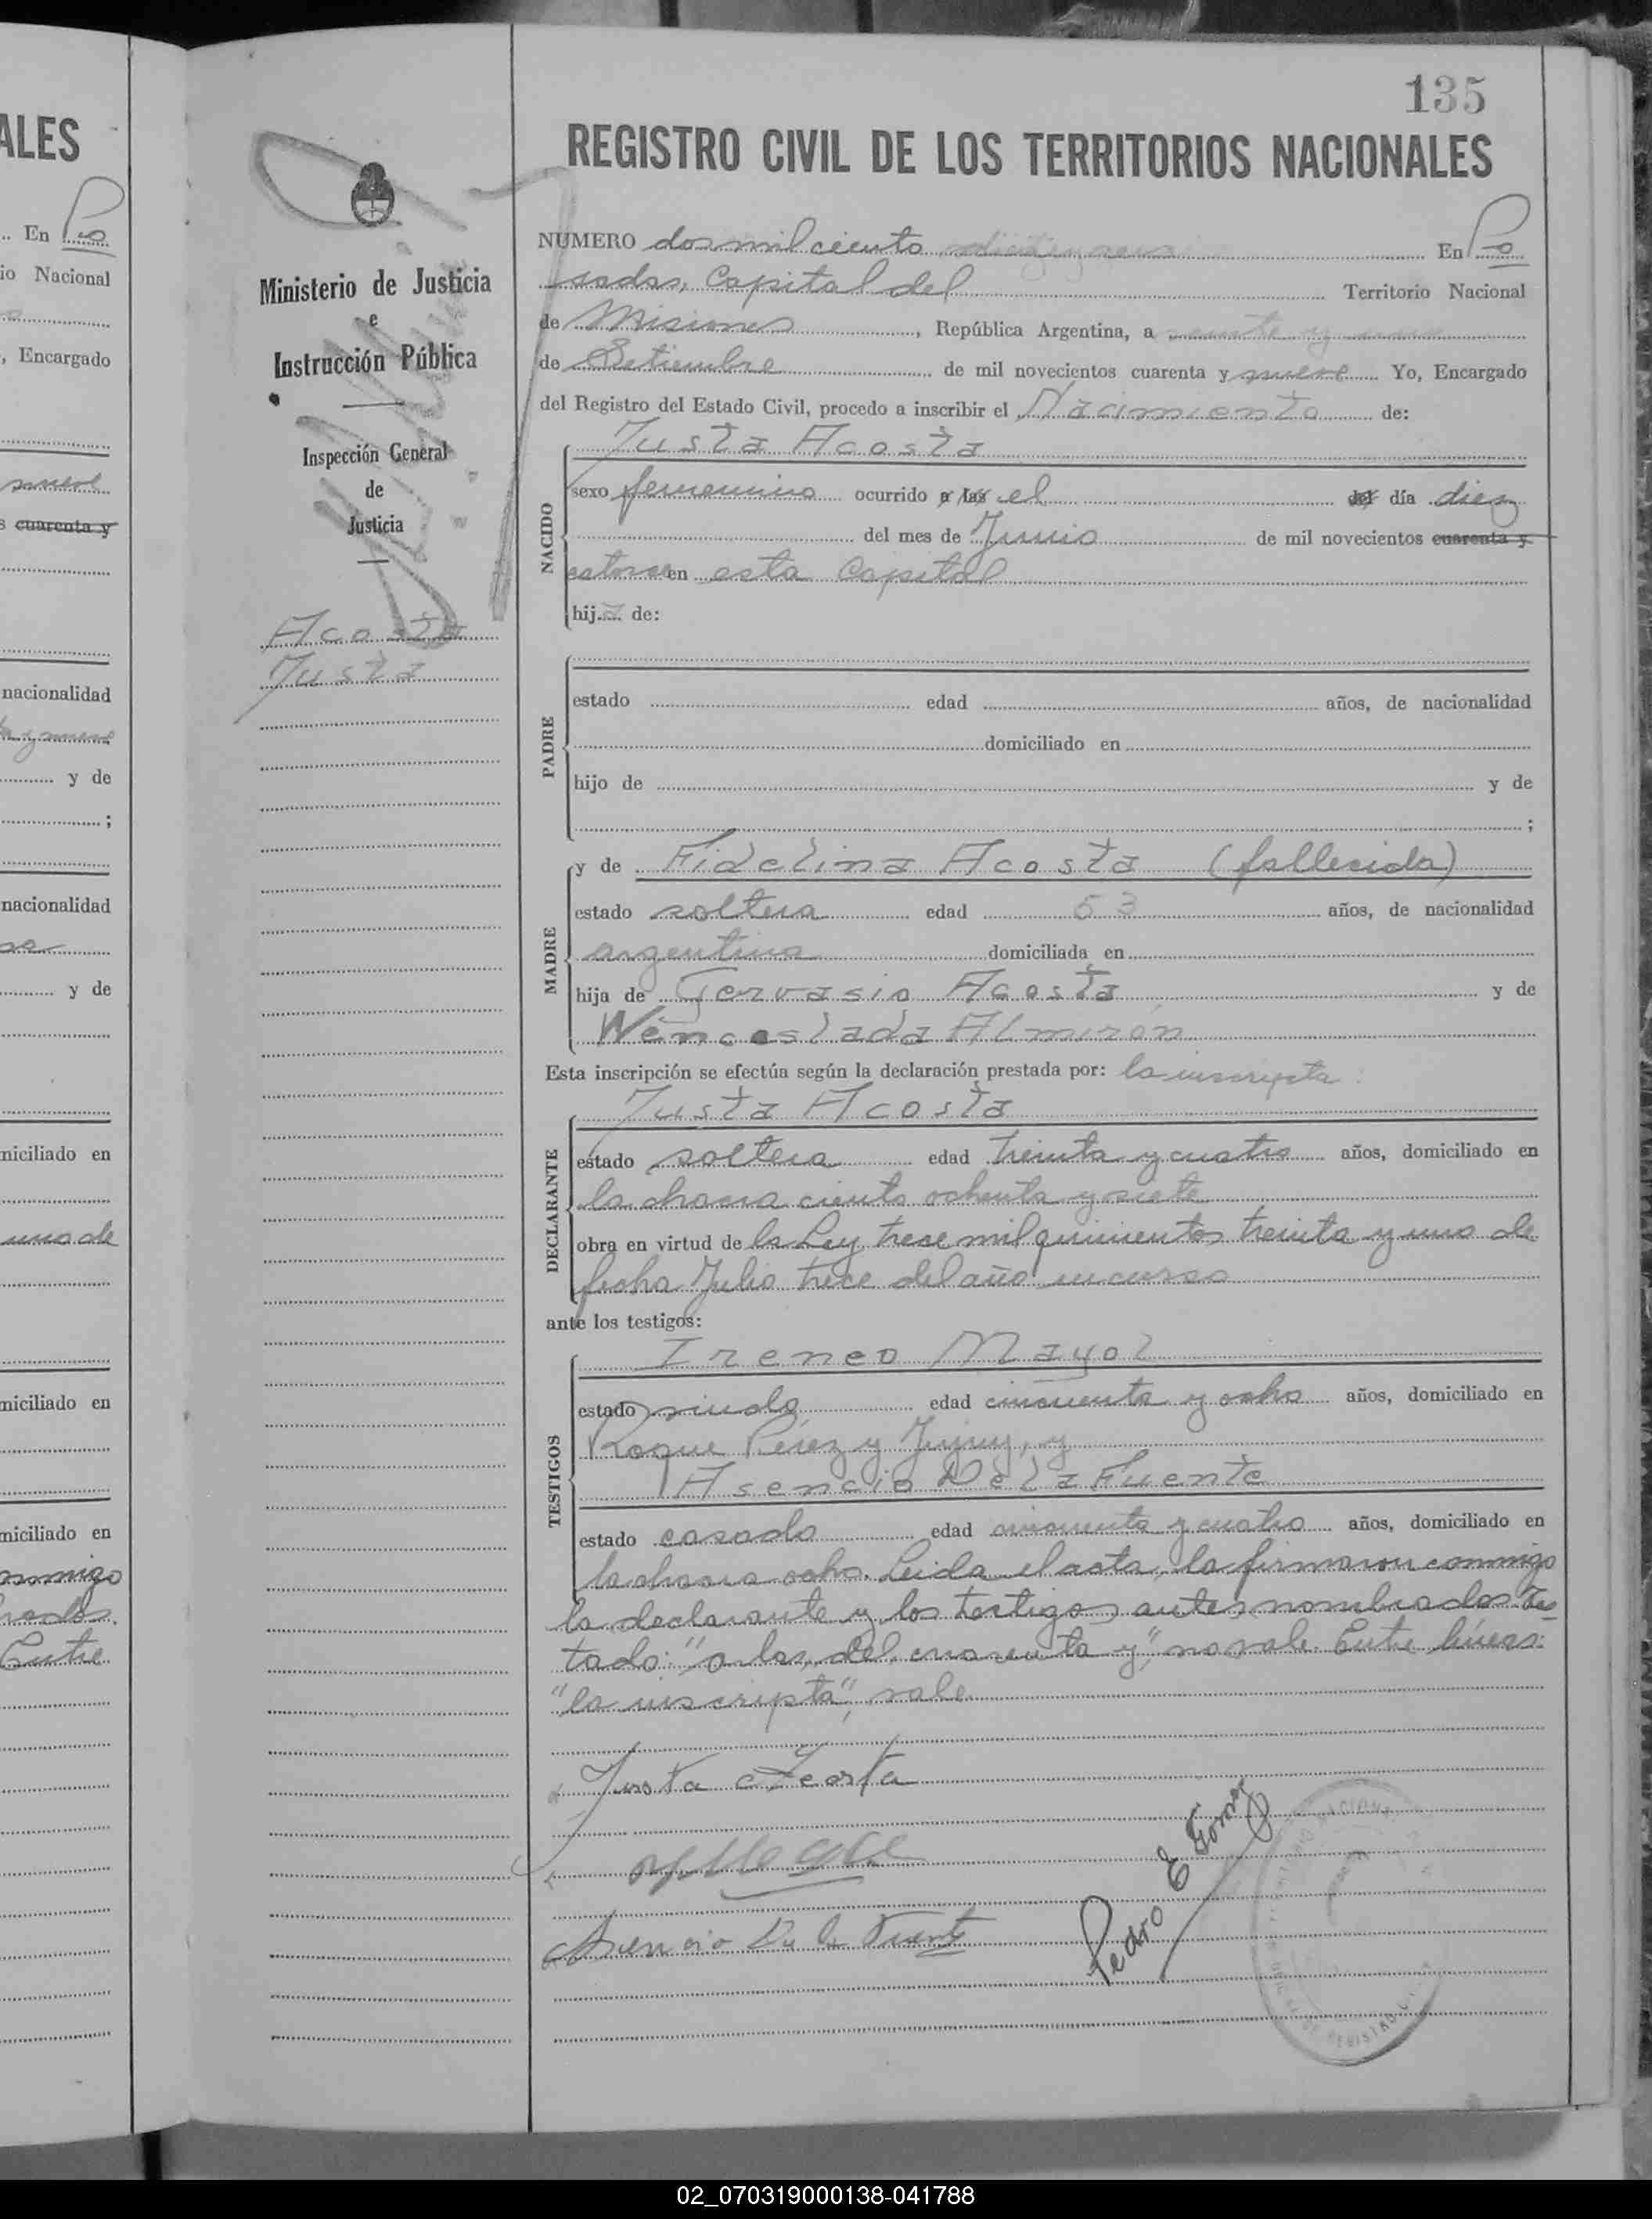 135
ALES
REGISTRO CIVIL DE LOS TERRITORIOS NACIONALES
En Po
io Nacional
, Encargado
nueve
s cuarenta y
nacionalidad
y de
;
nacionalidad
y de
miciliado en
uno de
miciliado en
miciliado en
conmigo
Entre
Ministerio de Justicia
e
Instrucción Pública
Inspección General
de
Justicia
Acosta
Justa
NUMERO dos mil ciento En Po
sadas, Capital del Territorio Nacional
de Misiones, República Argentina, a veinte y uno
de Setiembre de mil novecientos cuarenta y nueve Yo, Encargado
del Registro del Estado Civil, procedo a inscribir el Nacimiento de:
NACIDO
Justa Acosta
sexo femenino ocurrido a las el del día diez
del mes de Junio de mil novecientos cuarenta y
catorce en esta Capital
hija de:
PADRE
estado edad años, de nacionalidad
domiciliado en
hijo de y de
;
MADRE
y de Fidelina Acosta (fallecida)
estado soltera edad 53 años, de nacionalidad
argentina domiciliada en
hija de Gervasio Acosta y de
Wenceslada Almirón
Esta inscripción se efectúa según la declaración prestada por: la inscripta:
DECLARANTE
Justa Acosta
estado soltera edad treinta y cuatro años, domiciliado en
la chacra ciento ochenta y siete
obra en virtud de la Ley trece mil quinientos treinta y uno de
fecha Julio trece del año en curso
ante los testigos:
TESTIGOS
Ireneo Mayol
estado viudo edad cincuenta y ocho años, domiciliado en
Roque Perez y Jujuy, y
Asencio De la Fuente
estado casado edad cincuenta y cuatro años, domiciliado en
la chacra ocho. Leida el acta, la firmaron conmigo
la declarante y los testigos antes nombrados Tes
tado: "a las, del, cuarenta y", no vale. Entre líneas:
"la inscripta", vale.
Justa Acosta
Asencio De la Fuente
Pedro E Gomez
02_070319000138-041788